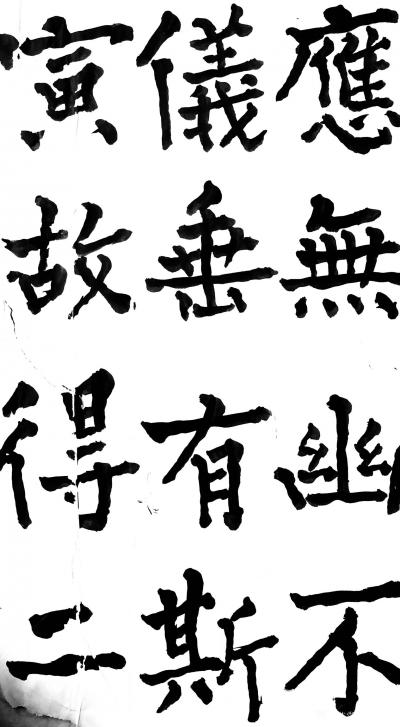 應無幽不
儀垂有斯
寅故得二